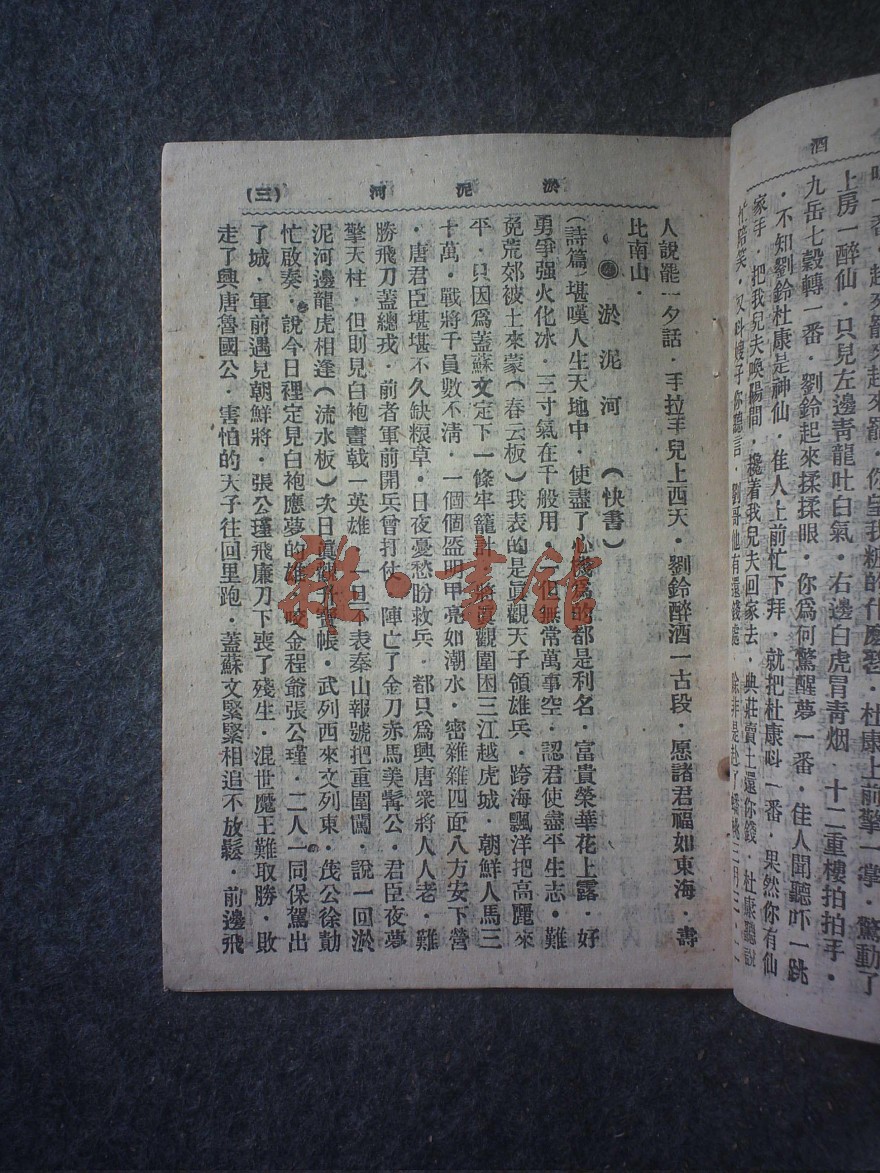 酒
上房一醉仙・只見左邊靑龍吐白氣・右邊白虎冒靑烟　十二重樓拍拍手・
九岳七穀轉一番・劉鈴起來揉揉眼・你爲何驚醒夢一番・佳人聞聽吓一跳
・不知劉鈴杜康是神仙・佳人上前忙下拜・就把杜康呌一番・果然你有仙
家手・把我兒夫喚陽間・攙着我兒夫回家去・典莊賣土還你錢・杜康聽説
淤泥河
(三)
人説罷一夕話・手拉手兒上西天・劉鈴醉酒一古段・愿諸君福如東海・壽
比南山・
淤泥河（快書）
（詩篇）堪嘆人生天地中・使盡了心機爲的都是利名・富貴榮華花上露・好
勇爭强火化冰・三寸氣在千般用・一但無常萬事空・認君使盡平生志・難
免荒郊被土來蒙（春云板）我表的是眞觀天子領雄兵・跨海飄洋把高麗來
平・只因爲蓋蘇文定下一條牢籠計・將眞觀圍困三江越虎城・朝鮮人馬三
十萬・戰將千員數不清・一個個盔明甲亮如潮水・密雜雜四面八方安下營
・唐君臣堪堪不久缺粮草・日夜憂愁盼救兵・都只爲興唐衆將人人老・難
勝飛刀蓋總戎・前者軍前開兵曾打仗・陣亡了金刀赤馬美髯公・君臣夜夢
擎天柱・但則見白袍畫戟一英雄・一旦不表秦山報號把重圍闖・説一回淤
泥河邊龍虎相逢（流水板）次日眞觀升寶帳・武列西來文列東・茂公徐勣
忙啟奏・說今日裡定見白袍應夢的雄・咬金程爺張公瑾・二人一同保駕出
了城・軍前遇見朝鮮將・張公瑾飛廉刀下喪了殘生・混世魔王難取勝・敗
走了興唐魯國公・害怕的天子往回里跑・蓋蘇文緊緊相追不放鬆・前邊飛